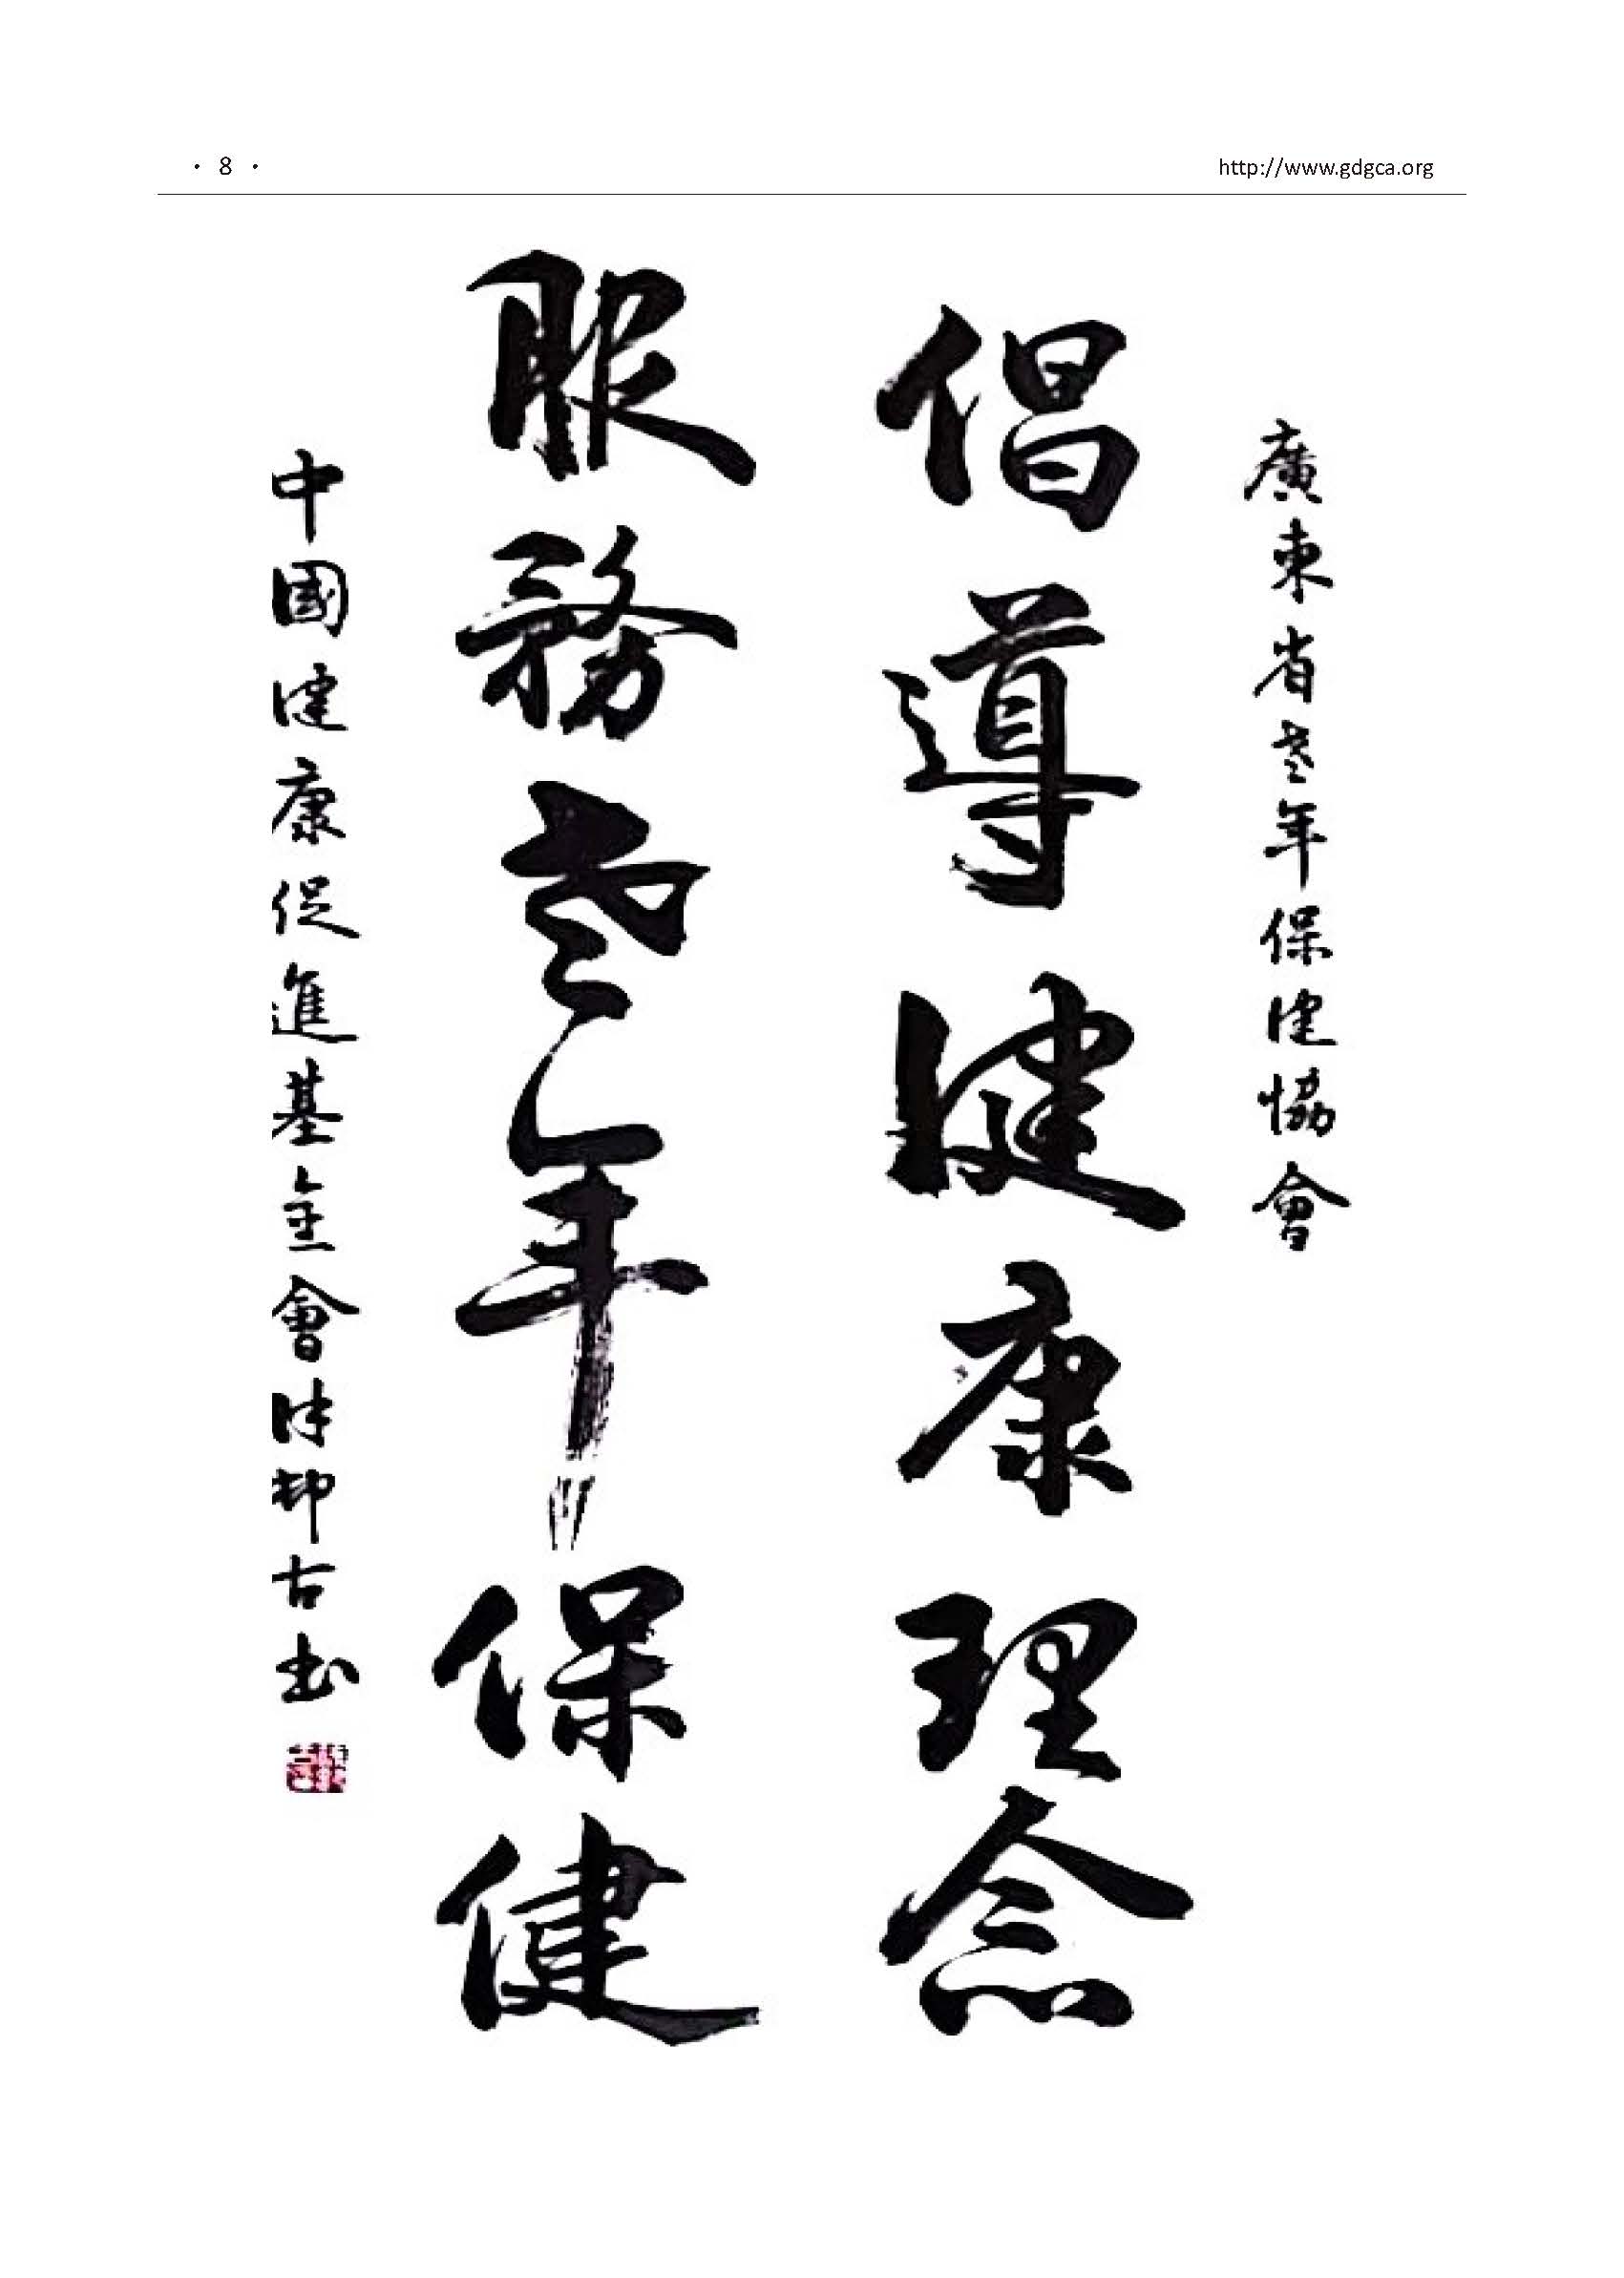 · 8 ·
http://www.gdgca.org
廣東省老年保健協會
倡導健康理念
服務老年保健
中國健康促進基金會 古書